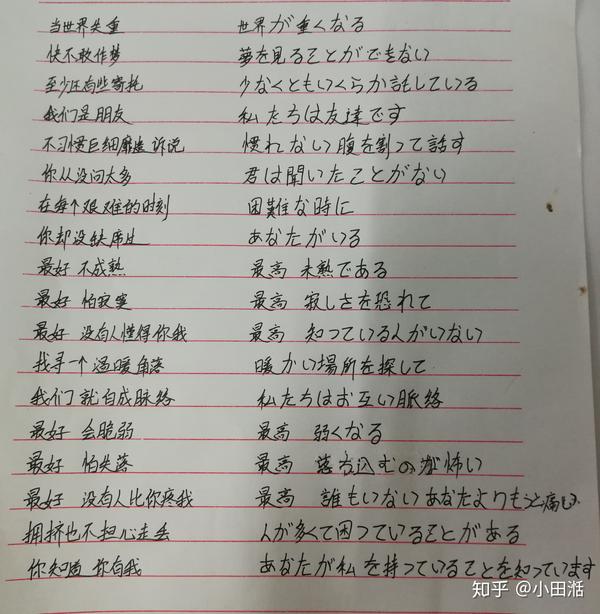 当世界失重 世界が重くなる
快不敢作梦 夢を見ることができない
至少还有些寄托 少なくともいくらか託している
我们是朋友 私たちは友達です
不习惯巨细靡遗诉说 慣れない腹を割って話す
你从没问太多 君は聞いたことがない
在每个艰难的时刻 困難な時に
你却没缺席过 あなたがいる
最好 不成熟 最高 未熟である
最好 怕寂寞 最高 寂しさを恐れて
最好 没有人懂得你我 最高 知っている人がいない
找寻一个温暖角落 暖かい場所を探して
我们就自成脉络 私たちはお互い脈絡
最好 会脆弱 最高 弱くなる
最好 怕失落 最高 落ち込むのが怖い
最好 没有人比你疼我 最高 誰もいないあなたよりもっと痛い
拥挤也不担心走丢 人が多くて困っていることがある
你知道 你有我 あなたが私を持っていることを知っています
知乎 @小田湉